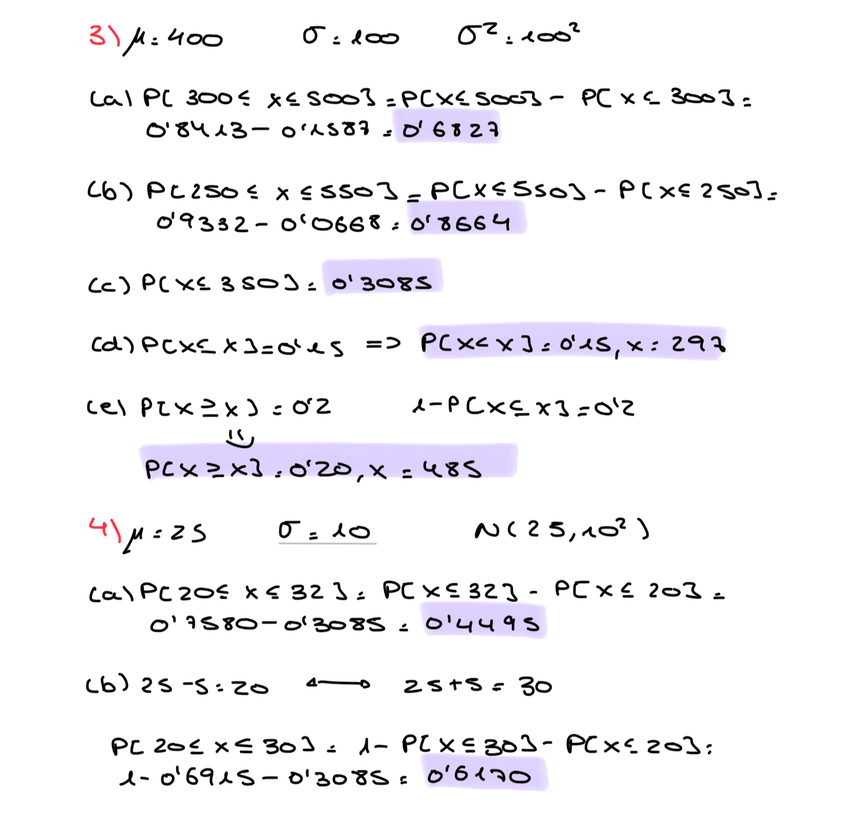 3) μ = 400 σ = 100 σ² = 100²
(a) P[300 ≤ x ≤ 500] = P[x ≤ 500] - P[x ≤ 300] =
0'8413 - 0'1587 = 0'6827
(b) P[250 ≤ x ≤ 550] = P[x ≤ 550] - P[x ≤ 250] =
0'9332 - 0'0668 = 0'8664
(c) P[x ≤ 350] = 0'3085
(d) P[x ≤ x] = 0'15 => P[x < x] = 0'15, x = 297
(e) P[x ≥ x] = 0'2 1 - P[x ≤ x] = 0'2
P[x ≥ x] = 0'20, x = 485
4) μ = 25 σ = 10 N(25, 10²)
(a) P[20 ≤ x ≤ 32] = P[x ≤ 32] - P[x ≤ 20] =
0'7580 - 0'3085 = 0'4495
(b) 25 - 5 = 20 ⟷ 25 + 5 = 30
P[20 ≤ x ≤ 30] = 1 - P[x ≤ 30] - P[x ≤ 20] =
1 - 0'6915 - 0'3085 = 0'6170